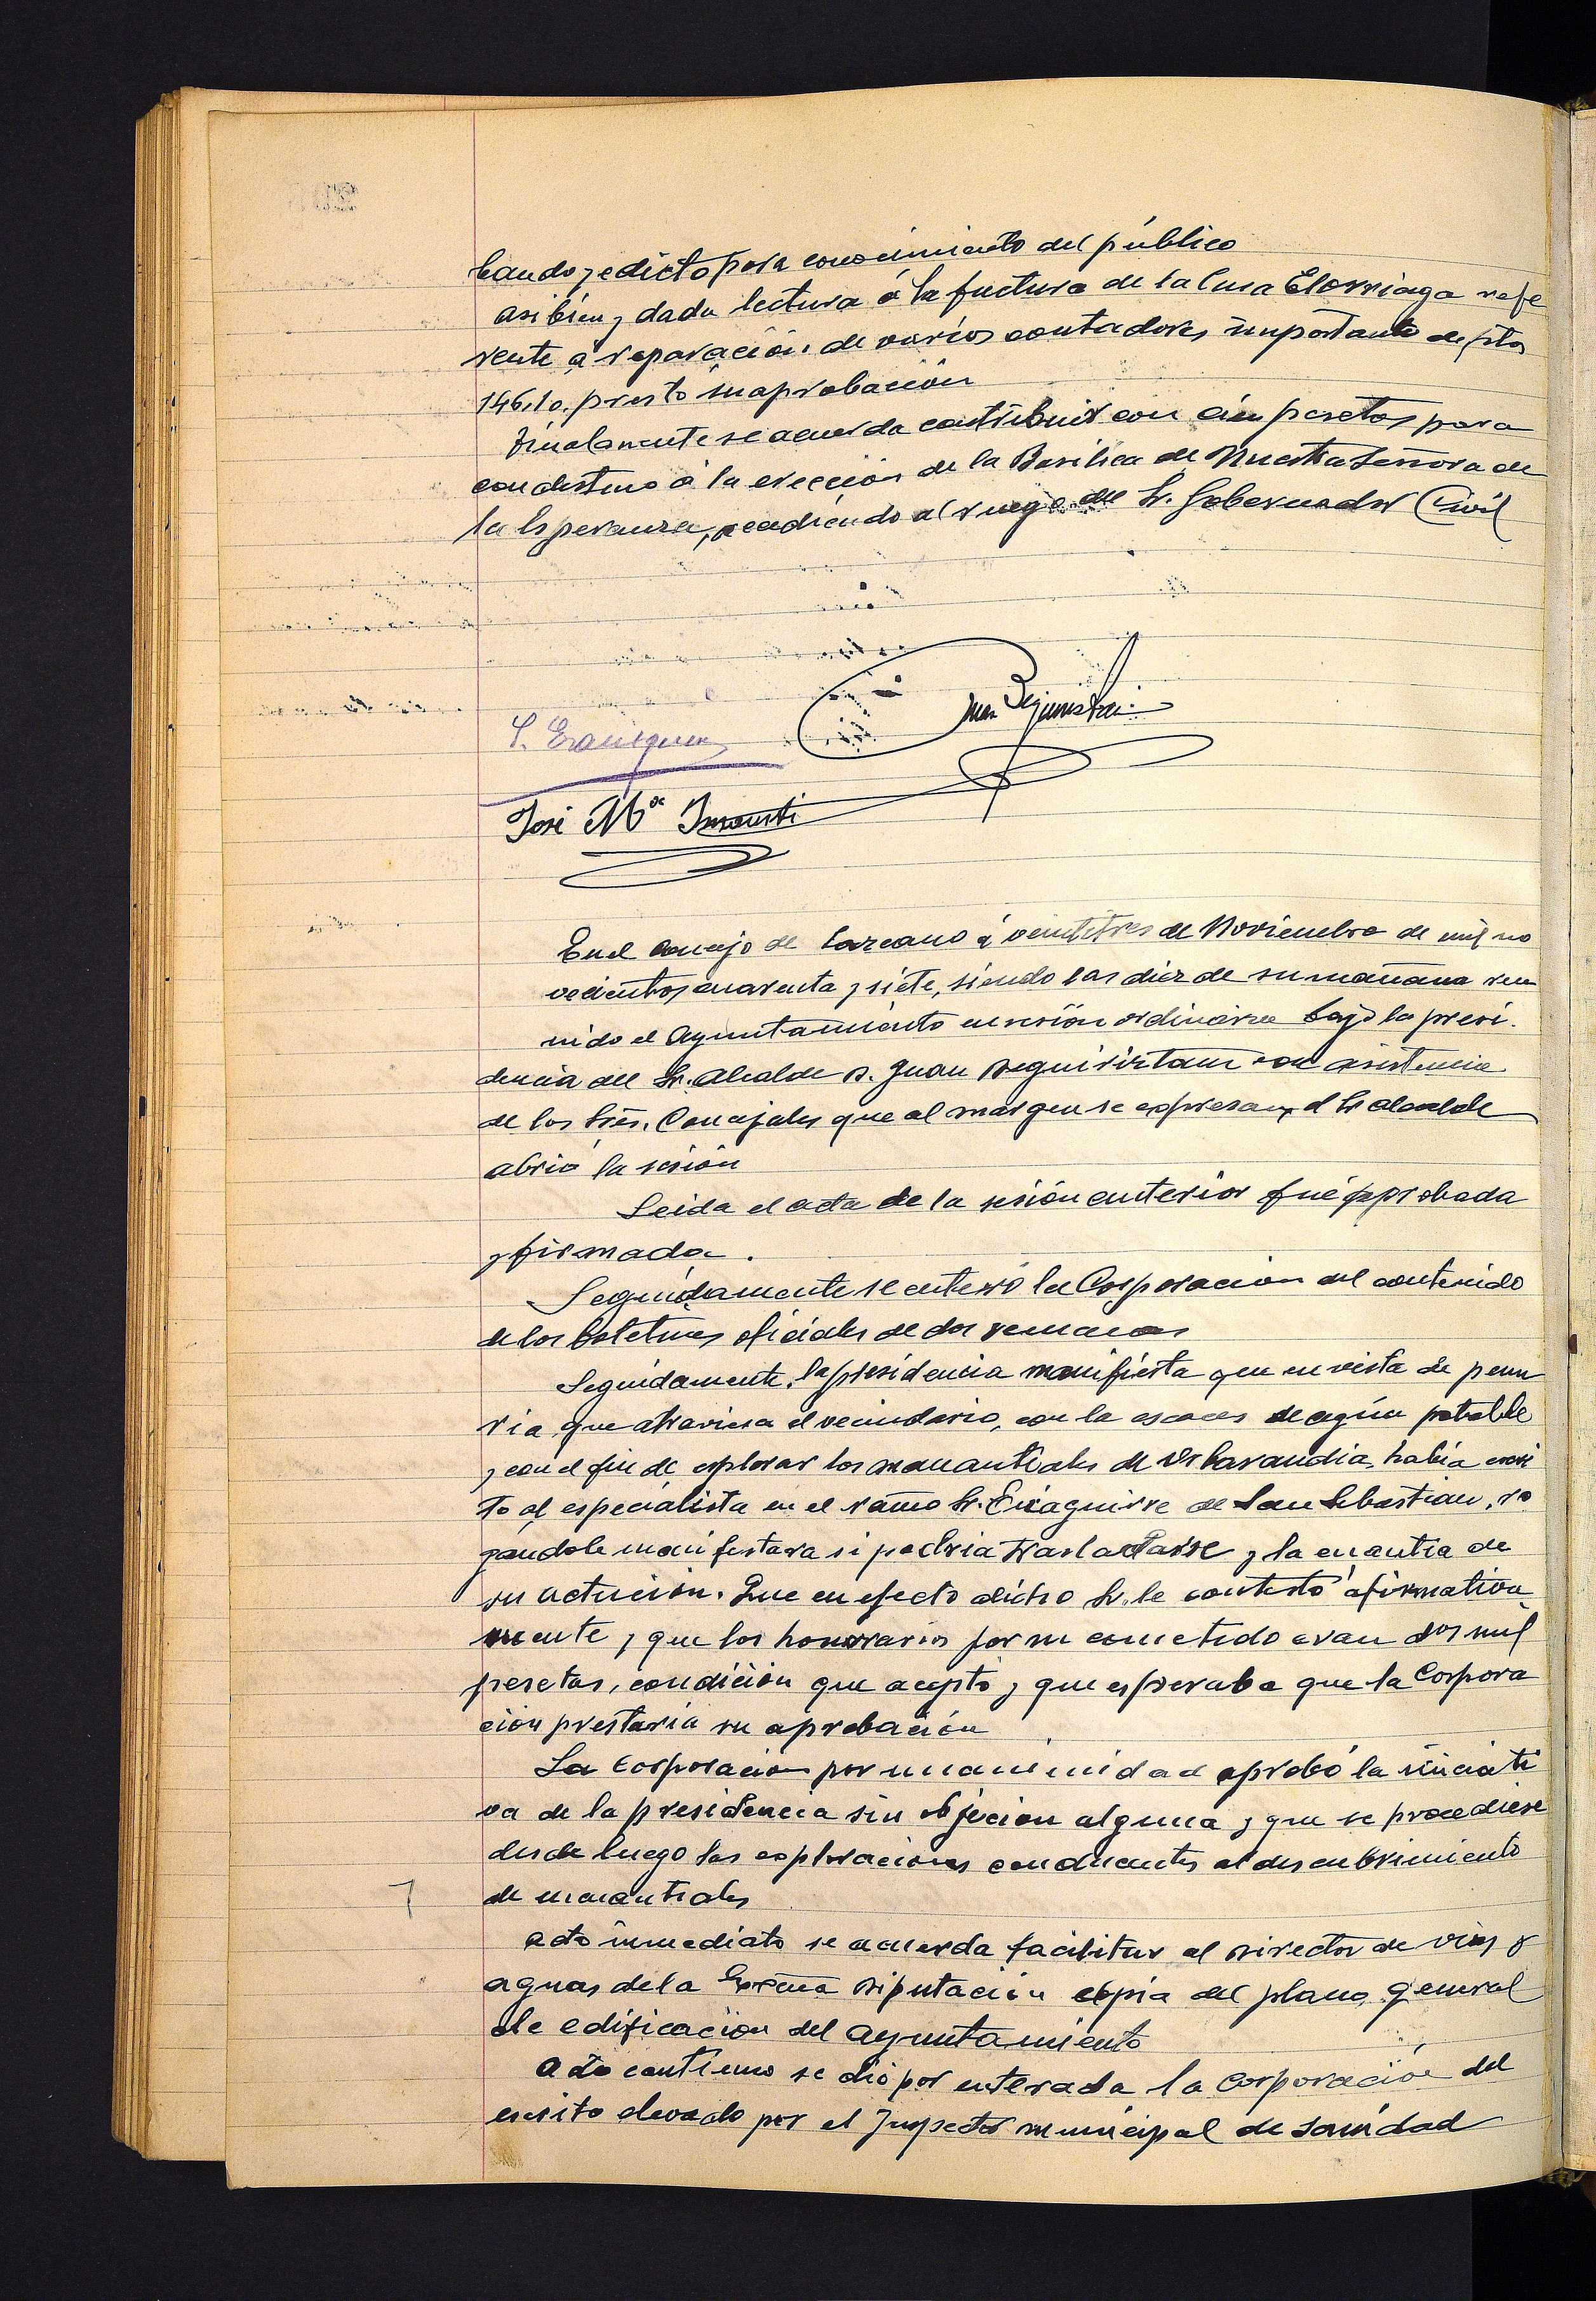 bando y edicto para conocimiento del público
asi bien, dada lectura á la factura de la Casa Elorriaga refe
rente á reparación de varios contadores importante de ptas
146,10, prestó su aprobación
Finalmente se acuerda contribuir con cien pesetas para
con destino á la erección de la Basílica de Nuestra Señora de
la Esperanza, accediendo al ruego del Sr. Gobernador Civil
Juan Beguiristain
José Mª Insausti
En el Concejo de Lazcano á veintitres de Noviembre de mil no
vecientos cuarenta y siete, siendo las diez de su mañana reu
nido el Ayuntamiento en sesión ordinaria bajo la presi.
dencia del Sr. Alcalde D. Juan Beguiristain con asistencia
de los Srēs. Concejales que al margen se expresan, el Sr alcalde
abrió la sesión
Leida el acta de la sesión anterior fué aprobada
y firmada.
Seguidamente se enteró la Corporación del contenido
de los boletines oficiales de dos semanas
Seguidamente, la presidencia manifiesta que en vista de penu
ria que atraviesa el vecindario, con la escaces de agua potable
y con el fin de explorar los manantiales de Urbarandia, habia escri
to al especialista en el ramo Sr. Eizaguirre de San Sebastian, ro
gandole manifestara si podria trasladarse y la cuantia de
su actución. Que en efecto dicho Sr. le contestó afirmativa
mente, y que los honorarios por su cometido eran dos mil
pesetas, condición que aceptó y que esperaba que la Corpora
ción prestaria su aprobación
La Corporación por unanimidad aprobó la iniciati
va de la presidencia sin objecion alguna y que se procediese
desde luego las exploraciones conducentes al descubrimiento
de manantiales
acto inmediato se acuerda facilitar al Director de vias y
aguas de la Excma Diputación copia del plano general
de edificación del Ayuntamiento
Acto contínuo se dió por enterada la Corporación del
escrito elevado por el Inspector municipal de Sanidad